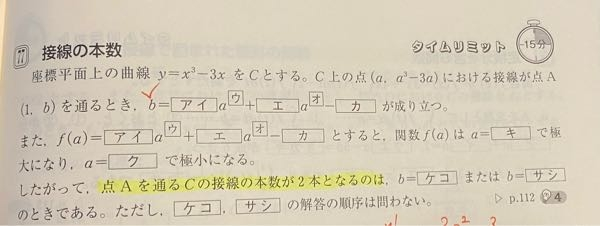 接線の本数
タイムリミット 15分
座標平面上の曲線 y=x³−3x を C とする。C 上の点 (a, a³−3a) における接線が点 A
(1, b) を通るとき, b= アイ a ウ + エ a オ − カ が成り立つ。
また, f(a)= アイ a ウ + エ a オ − カ とすると, 関数 f(a) は a= キ で極
大になり, a= ク で極小になる。
したがって, 点 A を通る C の接線の本数が 2 本となるのは, b= ケコ または b= サシ
のときである。ただし, ケコ , サシ の解答の順序は問わない。
▷ p.112 4